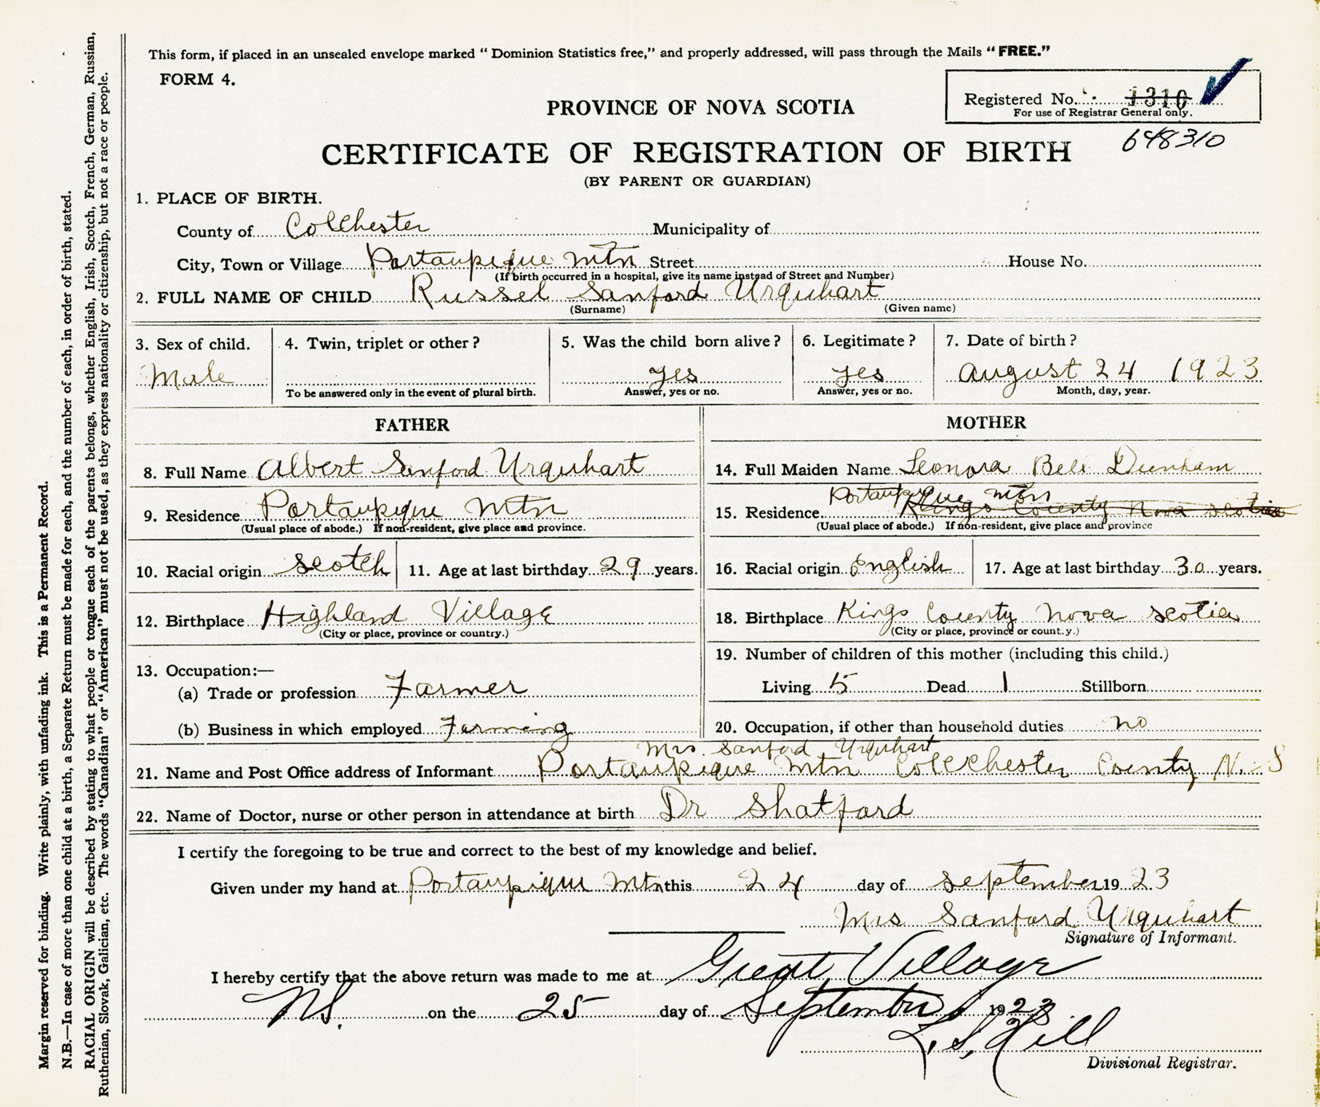 This form, if placed in an unsealed envelope marked “ Dominion Statistics free,” and properly addressed, will pass through the Mails “ FREE.”
FORM 4.
Registered No. 1310
For use of Registrar General only.
648310
PROVINCE OF NOVA SCOTIA
CERTIFICATE OF REGISTRATION OF BIRTH
(BY PARENT OR GUARDIAN)
1. PLACE OF BIRTH.
County of Colchester Municipality of
City, Town or Village Portaupique Mtn Street House No.
(If birth occurred in a hospital, give its name instead of Street and Number)
2. FULL NAME OF CHILD Russel Sanford Urquhart
(Surname) (Given name)
3. Sex of child. 4. Twin, triplet or other ? 5. Was the child born alive ? 6. Legitimate ? 7. Date of birth ?
Male yes yes august 24 1923
To be answered only in the event of plural birth. Answer, yes or no. Answer, yes or no. Month, day, year.
FATHER
8. Full Name Albert Sanford Urquhart
9. Residence Portaupique Mtn
(Usual place of abode.) If non-resident, give place and province.
10. Racial origin scotch 11. Age at last birthday 29 years.
12. Birthplace Highland Village
(City or place, province or country.)
13. Occupation:—
(a) Trade or profession Farmer
(b) Business in which employed Farming
MOTHER
14. Full Maiden Name Leonora Bell Dunham
Portaupique Mtn
15. Residence Kings County Nova Scotia
(Usual place of abode.) If non-resident, give place and province
16. Racial origin English 17. Age at last birthday 30 years.
18. Birthplace Kings County Nova Scotia
(City or place, province or count.y.)
19. Number of children of this mother (including this child.)
Living 5 Dead 1 Stillborn
20. Occupation, if other than household duties no
Mrs Sanford Urquhart
21. Name and Post Office address of Informant Portaupique Mtn Colcchester County N. S
22. Name of Doctor, nurse or other person in attendance at birth Dr Shatford
I certify the foregoing to be true and correct to the best of my knowledge and belief.
Given under my hand at Portaupique Mtn this 24 day of September 19 23
Mrs Sanford Urquhart
Signature of Informant.
I hereby certify that the above return was made to me at Great Village
N.S. on the 25 day of September 1923
L. S. Hill
Divisional Registrar.
Margin reserved for binding. Write plainly, with unfading ink. This is a Permanent Record.
N.B.—In case of more than one child at a birth, a Separate Return must be made for each, and the number of each, in order of birth, stated.
RACIAL ORIGIN will be described by stating to what people or tongue each of the parents belongs, whether English, Irish, Scotch, French, German, Russian,
Ruthenian, Slovak, Galician, etc. The words “Canadian” or “American” must not be used, as they express nationality or citizenship, but not a race or people.